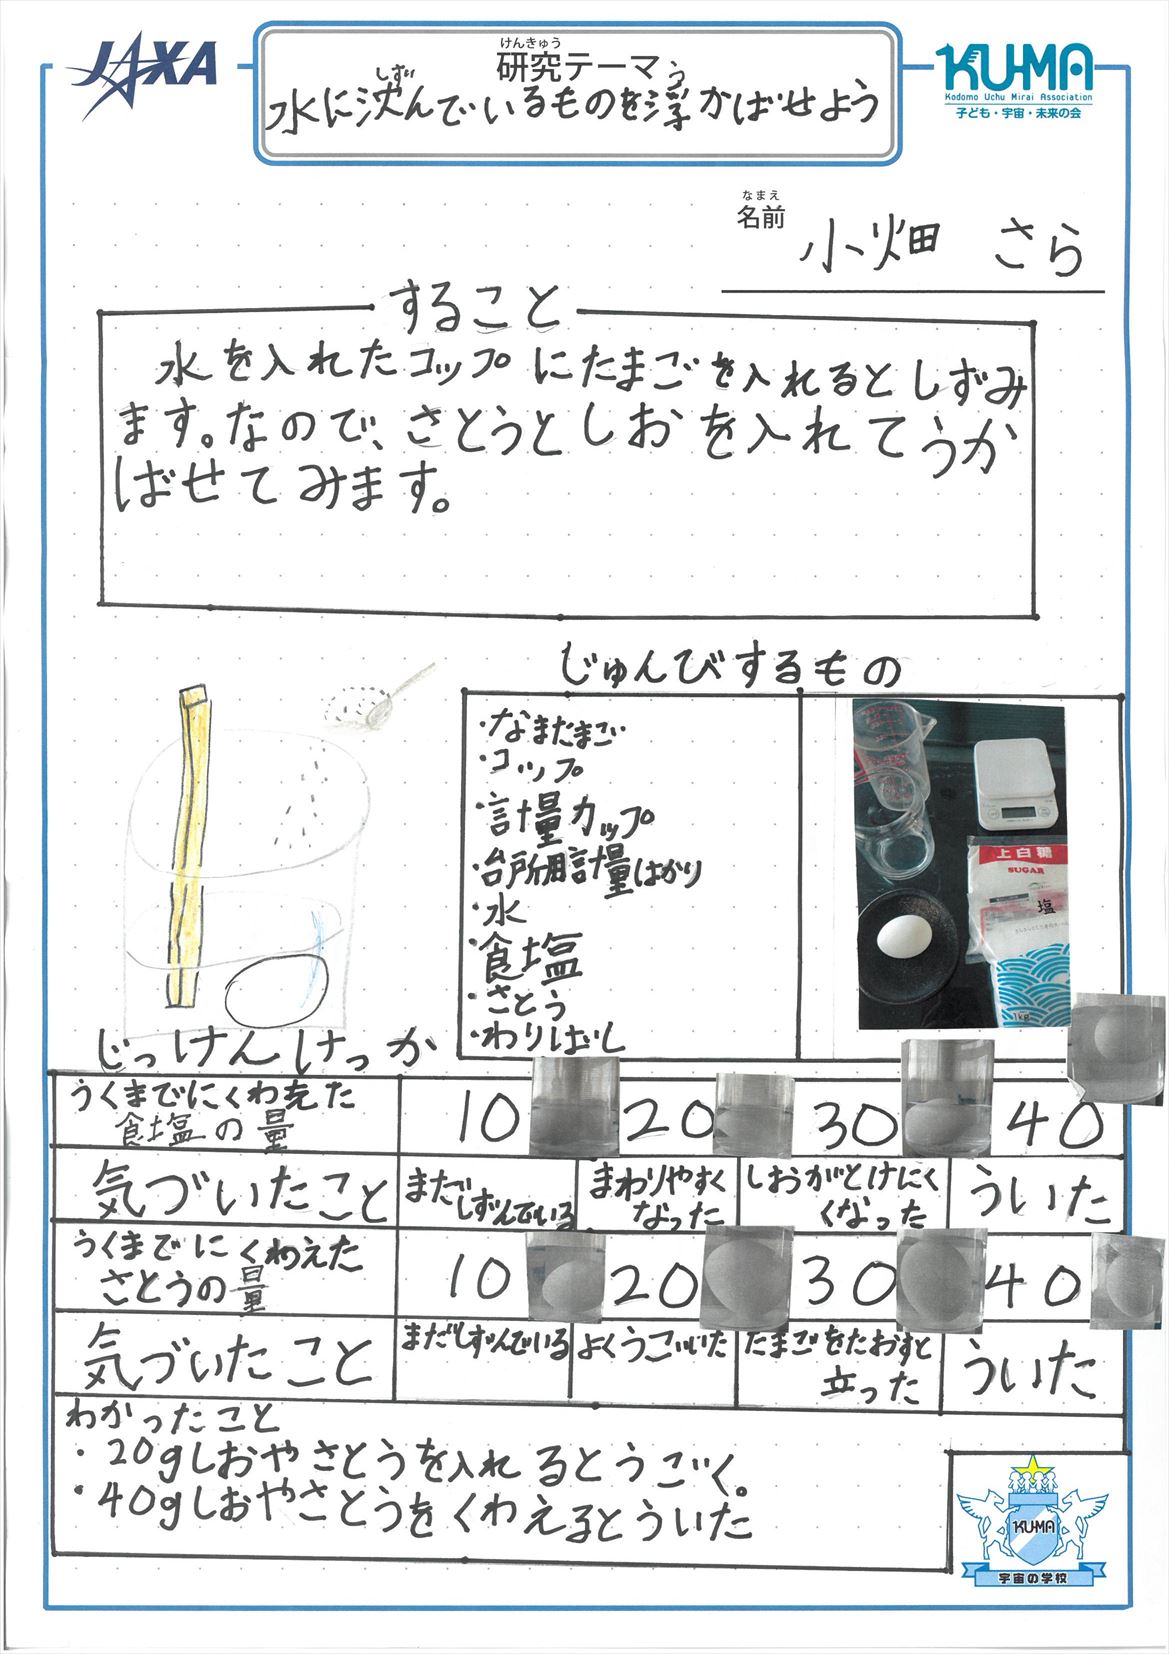 JAXA
けんきゅう
研究テーマ
しず
う
水に沈んでいるものを浮かばせよう
KU-MA
Kodomo Uchu Mirai Association
子ども・宇宙・未来の会
なまえ
名前
小畑 さら
すること
水を入れたコップにたまごを入れるとしずみ
ます。なので、さとうとしおを入れてうか
ばせてみます。
じゅんびするもの
・なまたまご
・コップ
・計量カップ
・台所用計量はかり
・水
・食塩
・さとう
・わりばし
上白糖
SUGAR
塩
1kg
じっけんけっか
うくまでにくわえた
食塩の量
10
20
30
40
気づいたこと
まだ
しずんでいる
まわりやすく
なった
しおがとけにく
くなった
ういた
うくまでにくわえた
さとうの量
10
20
30
40
気づいたこと
まだしずんでいる
よくうごいた
たまごをたおすと
立った
ういた
わかったこと
・20gしおやさとうを入れるとうごく。
・40gしおやさとうをくわえるとういた
KU-MA
宇宙の学校